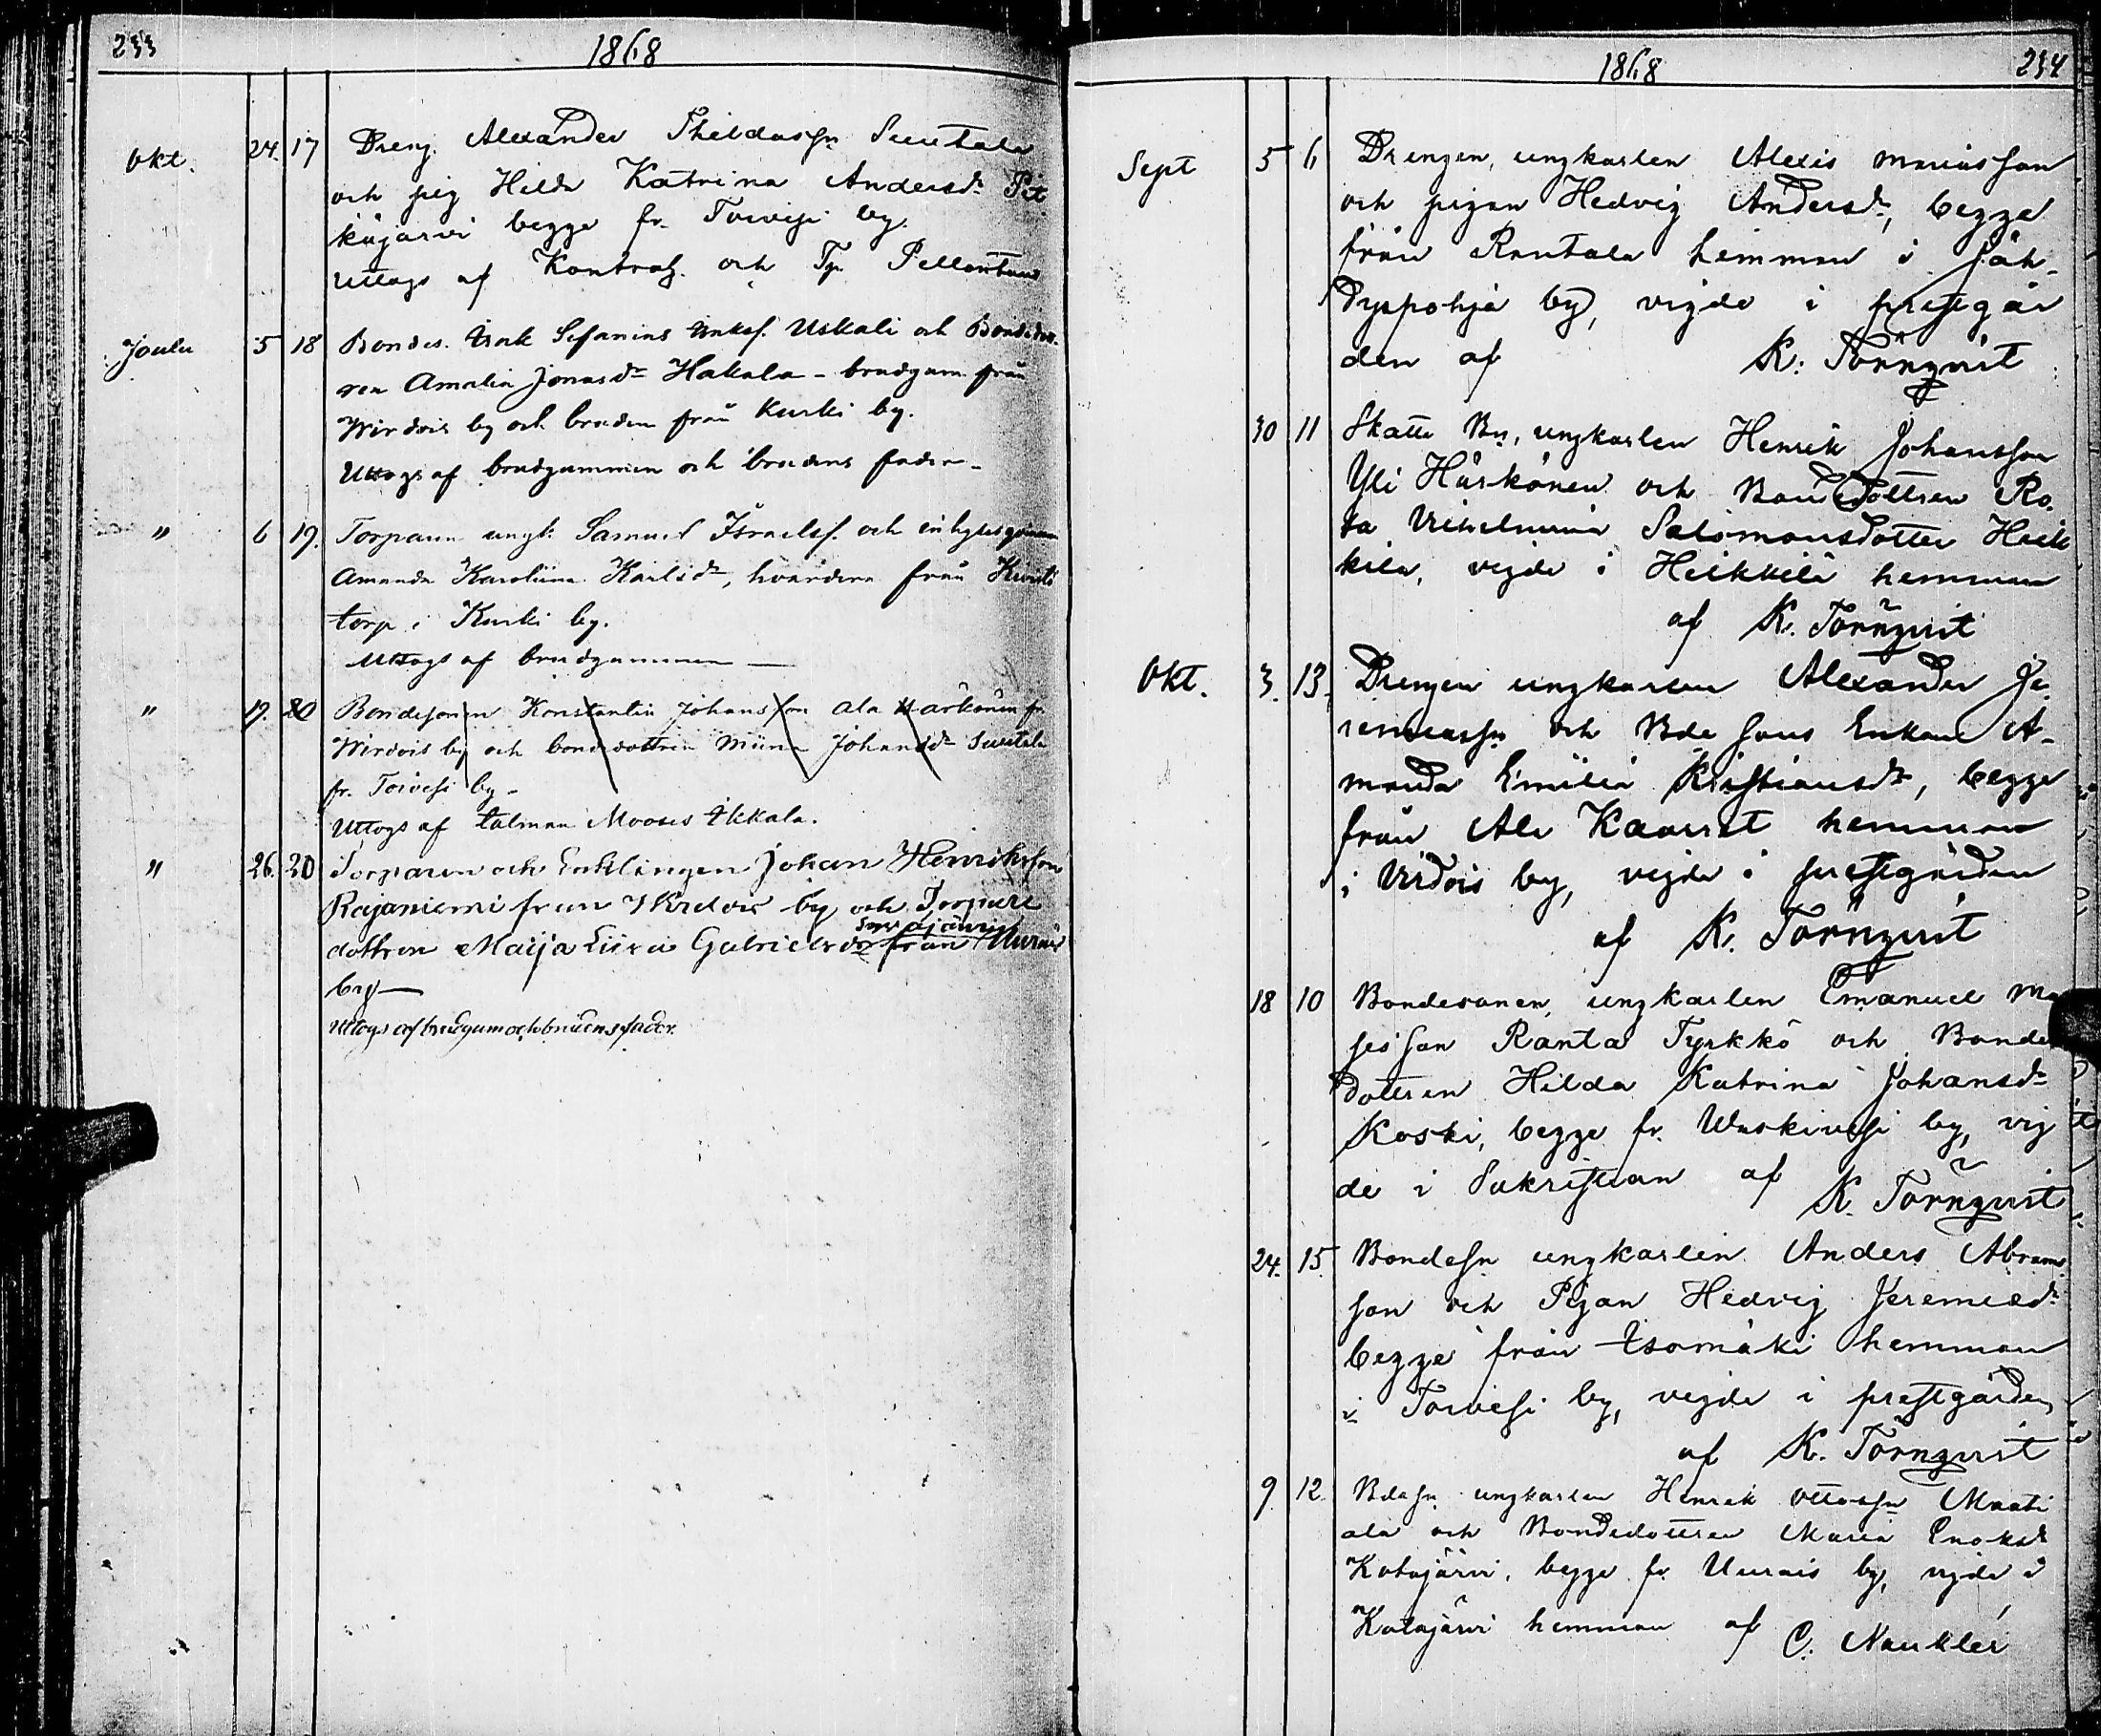 233
1868
Okt. 24. 17 Dreng. Alexander Suutala
och pig Hilda Katrina Andersdr Pit
käjärvi begge fr. Toivesi by.
Uttogs af Kontrah. och Tp.
Joulu 5 18 Bondes. Isak Sefanias Uskali och Bondedot
ren Amalia Jonasdr Hakala - brudgum från
Wirdois by och bruden från Kurki by.
Uttogs af brudgummen och brudens fader -
" 6 19. Torparen ungk. Samuel Israelsf. och inhyses
Amanda Karolina Karlsdr, hvardera från
torp i Kurki by.
Uttogs af brudgummen —
" 19. 20 Bondesonen Konstantin Johansson Ala Härkönen fr.
Wirdois by och bondedottren Miina Johansdr Suutala
fr. Toivesi by -
Uttogs af talman Mooses Ikkala.
" 26. 20 Torparen och Enklingen Johan Henriksson
Rajaniemi från Wirdois by och Torpare
dottren Maija Liisa Gabrielsdr från
by —
Uttogs af brudgum och brudens fader.
1868
234
Sept 5 6 Drengen, ungkarlen Alexis Mariasson
och pigan Hedvig Andersdr, begge
från Rantala hemman i Jäh-
dyspohja by, vigde i prestgår
den af K. Törnqvist
30 11 Skatte Bn, ungkarlen Henrik Johansson
Yli Härkönen och Bondedottren Ro
sa Vilhelmina Salomonsdotter Heik
kilä, vigde i Heikkilä hemman
af K. Törnqvist
Okt. 3. 13. Drengen ungkarlen Alexander Je
remiassn och Bde sons Enkan A-
manda Emilia Kristiansdr, begge
från Ala hemman
i Virdois by, vigde i prestgården
af K. Törnqvist
18 10 Bondesonen, ungkarlen Emanuel Mo
sesson Ranta Tyrkkö och Bonde
dottren Hilda Katrina Johansdr
Koski, begge fr. Waskivesi by, vig
de i Sakristian af K. Törnqvist
24. 15. Bondesn ungkarlen Anders Abrams
son och Pigan Hedvig Jeremiasdr
begge från Isomäki hemman
i Toivesi by, vigde i prestgården
af K. Törnqvist
9 12 Bdesn ungkarlen Henrik Ottossn Maati
ala och Bondedottren Maria Enoksdr
Katajärvi, begge fr. Uurais by, vigde i
Katajärvi hemman af C. Nauklér